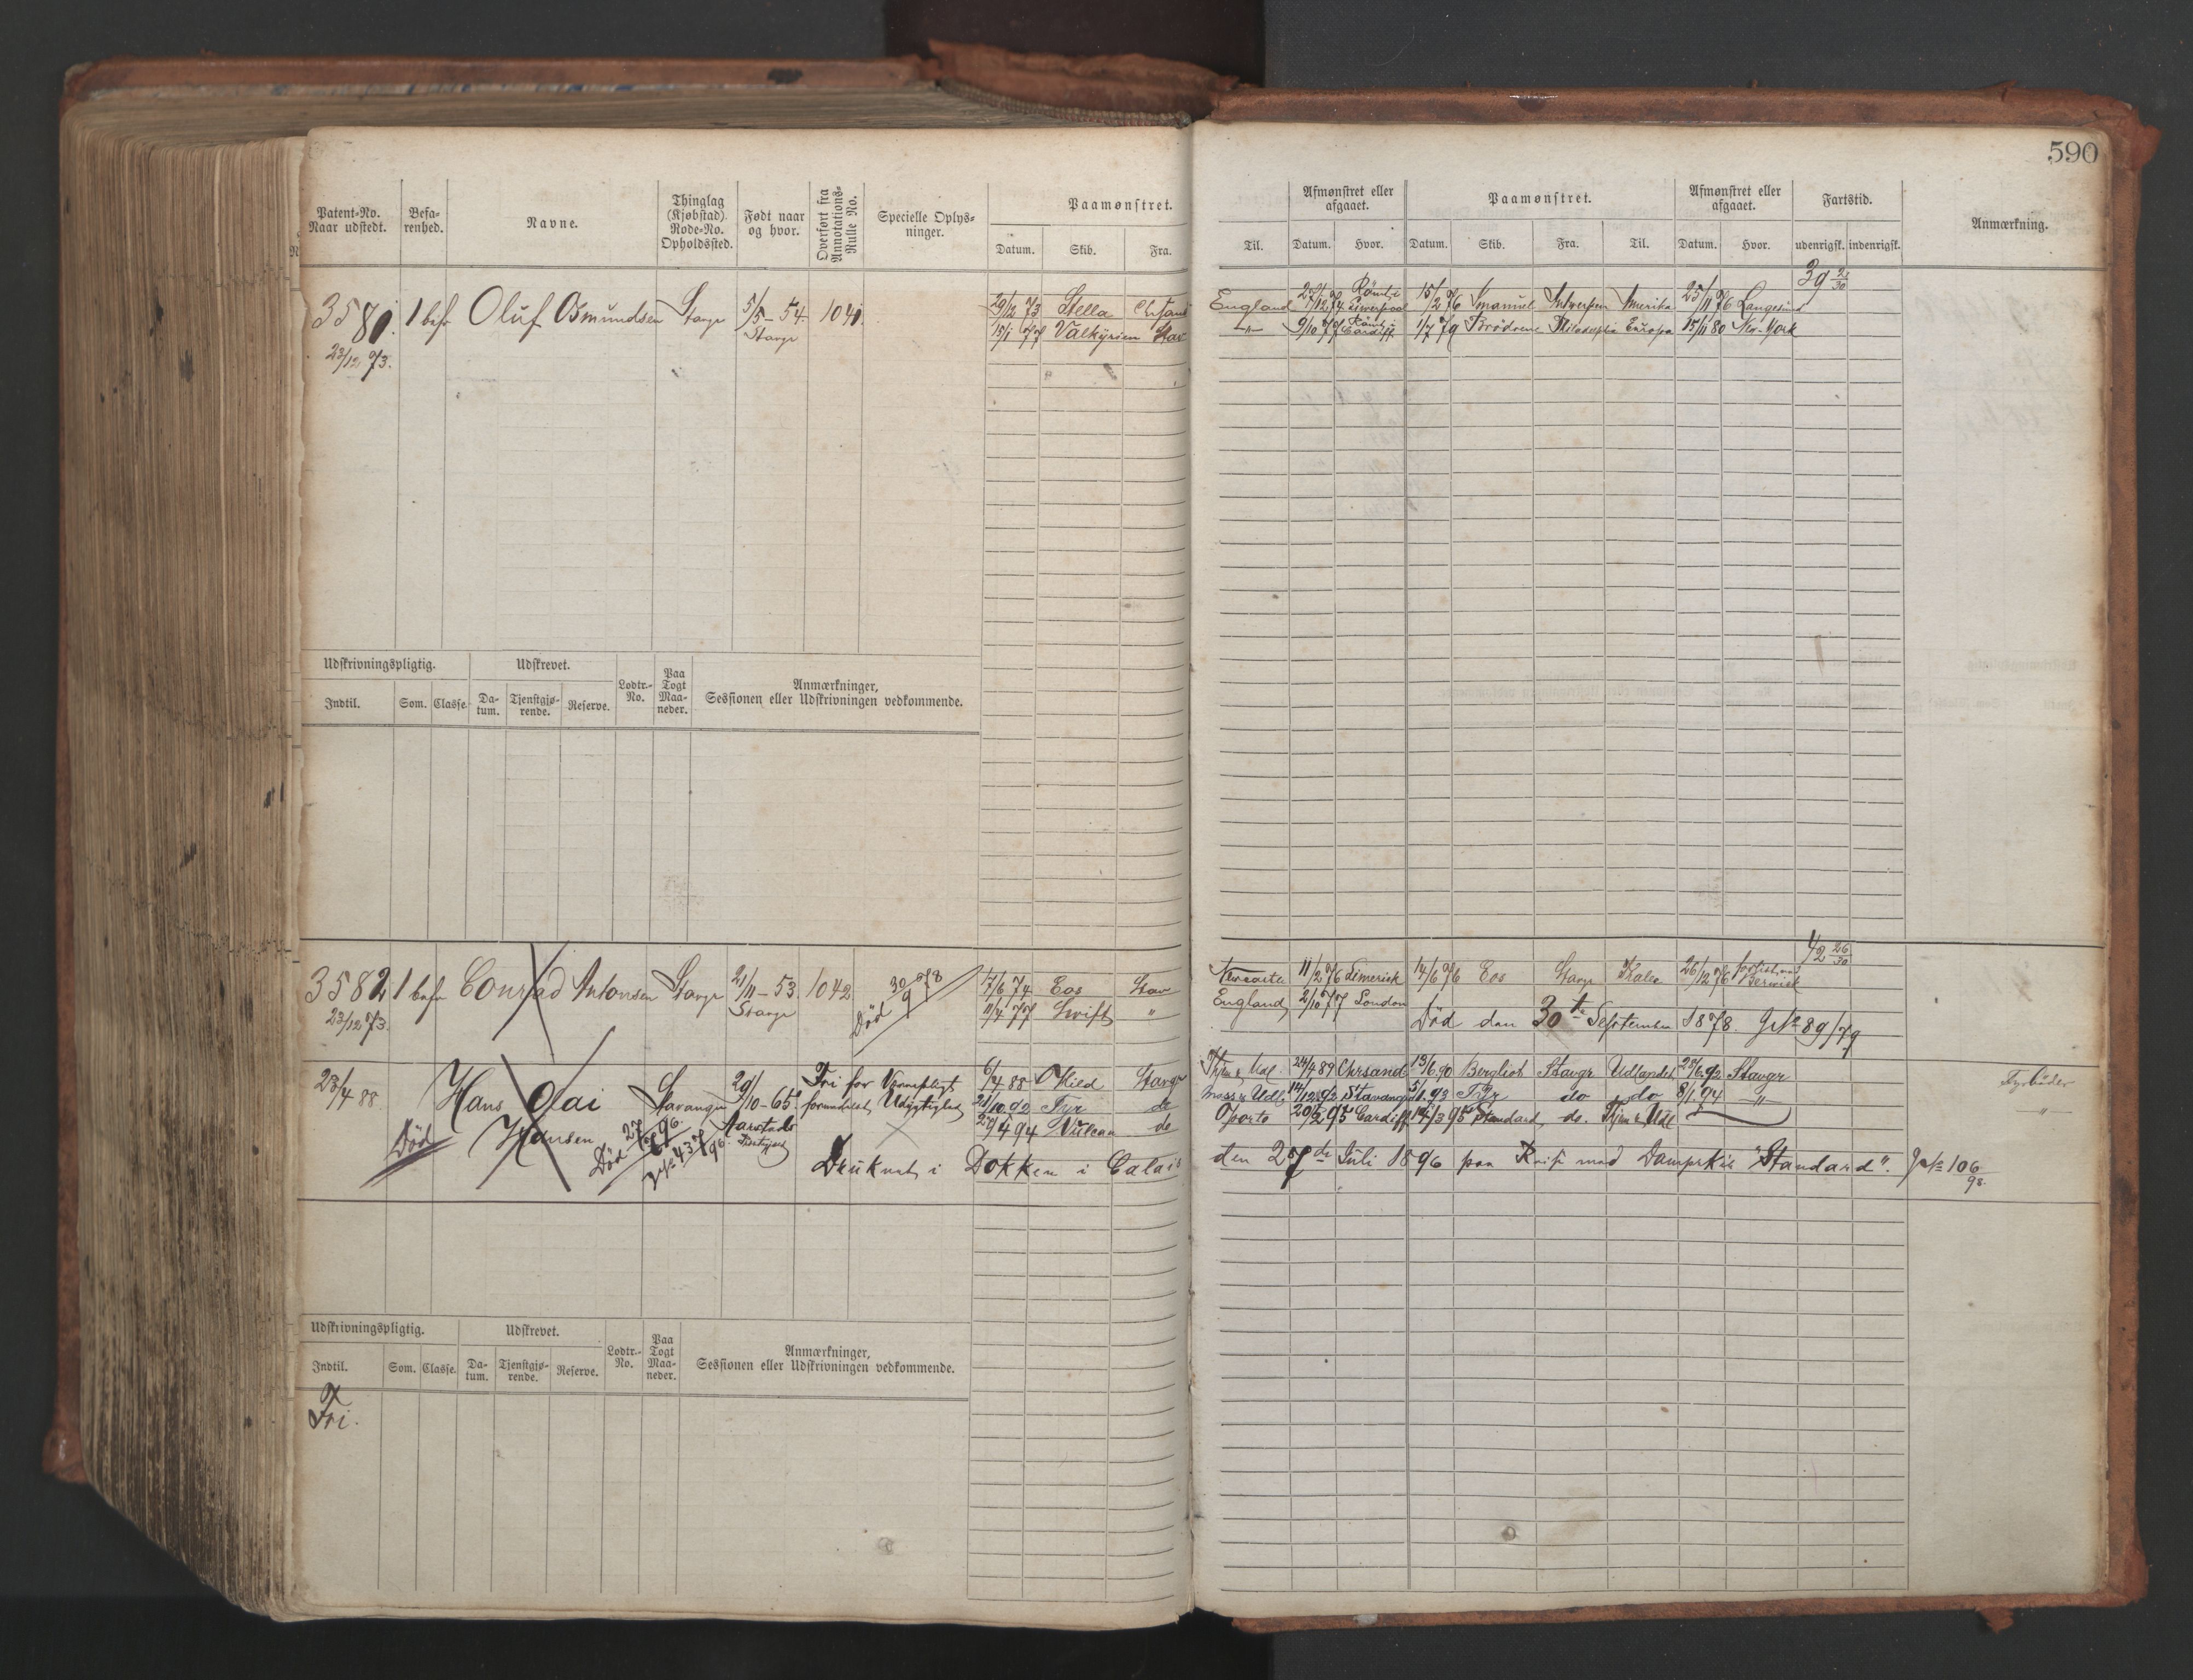 590
Patent-No. Naar udstedt.
Befa-renhed.
Navne.
Thinglag (Kjøbstad). Rode-No. Opholdssted.
Født naar og hvor.
Overført fra Annotations-Rulle No.
Specielle Oplys-ninger.
Paamønstret.
Datum. Skib. Fra.
Til.
Afmønstret eller afgaaet.
Datum. Hvor.
Paamønstret.
Datum. Skib. Fra. Til.
Afmønstret eller afgaaet.
Datum. Hvor.
Fartstid.
udenrigsk. indenrigsk.
Anmærkning.
39 23/30
3581. 1 bef Oluf Osmundsen Stavgr 5/5-54. 1041. 29/12 73 Stella Chrsand England Liverpool 15/2 76 Emanuel Antwerpen Amerika 25/11 76 Langesund
23/12 73. Stavgr 15/1 77 Valkyrien Stav " 9/10 79 Cardiff 1/7 79 Brødrene Philadelphia Europa 15/11 80 New-York
Udskrivningspligtig. Udskrevet. Lodtr.-No. Paa Togt Maa-neder. Anmærkninger, Sessionen eller Udskrivningen vedkommende.
Indtil. Som. Classe. Da-tum. Tjenstgjø-rende. Reserve.
42 26/30
3582 1 bef Conrad Antonsen Stavgr 21/11-53. 1042 Død 30/9 78 17/6 74 Eos Stav 11/2 76 Limerick 14/6 76 Eos Stavgr 26/12 76 Berwick
23/12 73. Stavgr 11/4 77 Swift " England 2/10 77 London
Død den 30te September 1878. JNo 89/79
23/4 88 Hans Gai Hansen Stavanger 29/10-65. Fri for Værnepligt formedelst Udygtighed 6/4 88 Hild Stavgr 24/4 89 Chrsand 13/6.90 Bergliot Stavgr Udlandet 23/6.92 Stavgr Fyrbøder
21/10.92 Tyr do Moss & Udl. 14/12.92 Stavanger 5/1.93 Tyr do do 8/1.94 " "
Aarstads 27/4 94 Vulcan do Oporto 20/2 95 Cardiff 14/3 95 Standard do.
Død
Død 27/7 96.
JNo 437/96.
Druknet i Dokken i Calais den 27de Juli 1896 paa Reise med Dampskib "Standard". JNo 106/98.
Udskrivningspligtig. Udskrevet. Lodtr.-No. Paa Togt Maa-neder. Anmærkninger, Sessionen eller Udskrivningen vedkommende.
Indtil. Som. Classe. Da-tum. Tjenstgjø-rende. Reserve.
Fri.